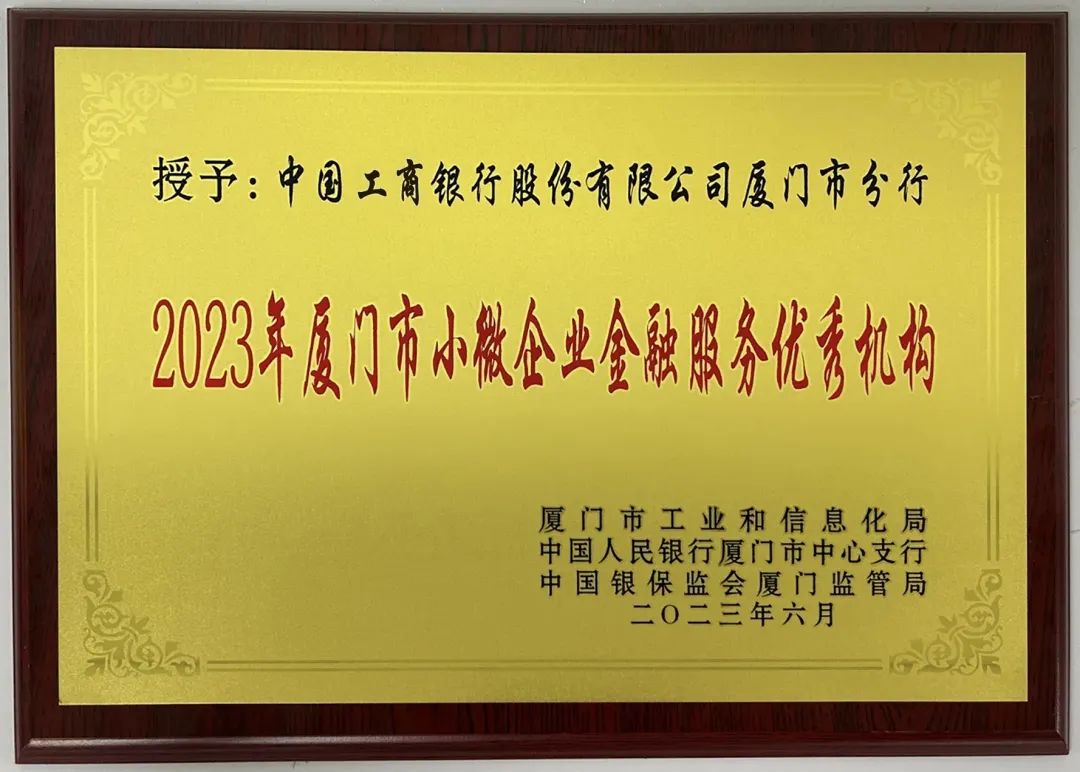 授予：中国工商银行股份有限公司厦门市分行
2023年厦门市小微企业金融服务优秀机构
厦门市工业和信息化局
中国人民银行厦门市中心支行
中国银保监会厦门监管局
二〇二三年六月